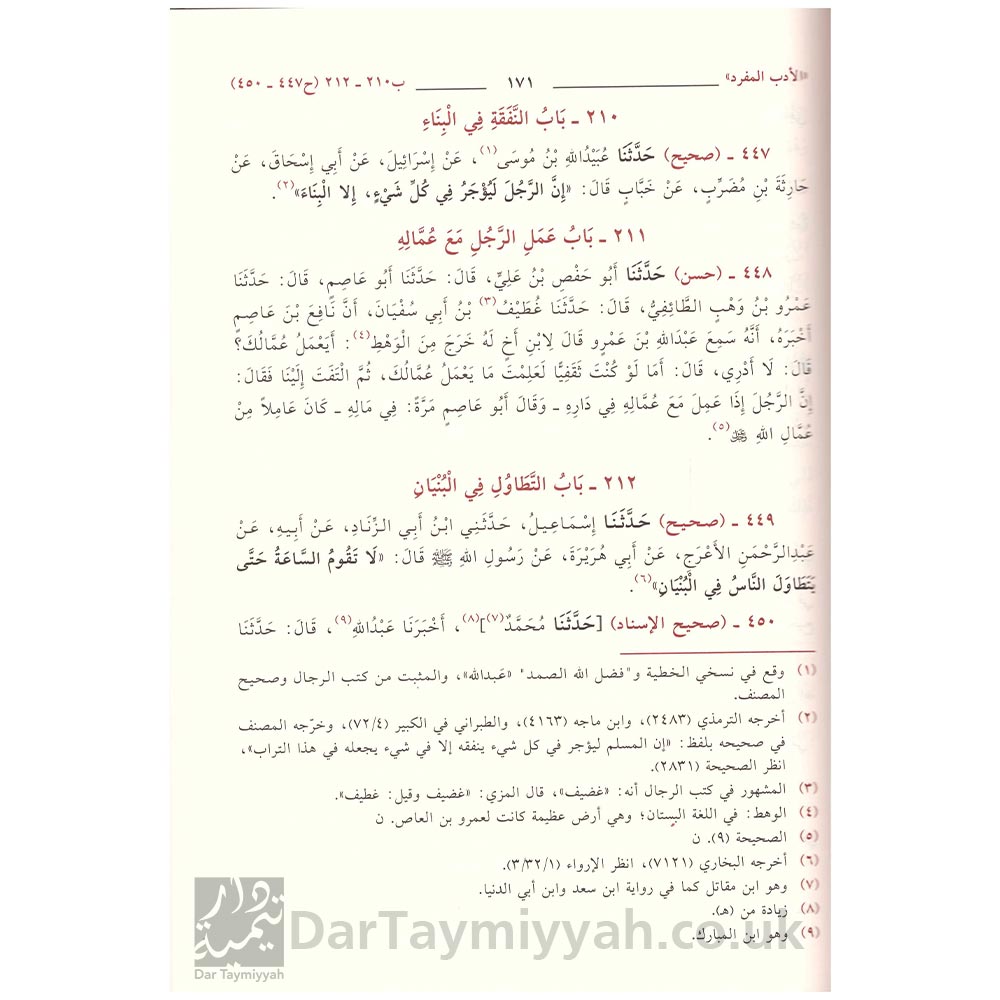 «الأدب المفرد» ١٧١ ب٢١٠ ـ ٢١٢ (ح٤٤٧ ـ ٤٥٠)
٢١٠ ـ بَابُ النَّفَقَةِ فِي الْبِنَاءِ
٤٤٧ ـ (صحيح) حَدَّثَنَا عُبَيْدُاللهِ بْنُ مُوسَى(١)، عَنْ إِسْرَائِيلَ، عَنْ أَبِي إِسْحَاقَ، عَنْ
حَارِثَةَ بْنِ مُضَرِّبٍ، عَنْ خَبَّابٍ قَالَ: «إِنَّ الرَّجُلَ لَيُؤْجَرُ فِي كُلِّ شَيْءٍ، إِلا الْبِنَاءَ»(٢).
٢١١ ـ بَابُ عَمَلِ الرَّجُلِ مَعَ عُمَّالِهِ
٤٤٨ ـ (حسن) حَدَّثَنَا أَبُو حَفْصِ بْنُ عَلِيٍّ، قَالَ: حَدَّثَنَا أَبُو عَاصِمٍ، قَالَ: حَدَّثَنَا
عَمْرُو بْنُ وَهْبٍ الطَّائِفِيُّ، قَالَ: حَدَّثَنَا غُطَيْفُ(٣) بْنُ أَبِي سُفْيَانَ، أَنَّ نَافِعَ بْنَ عَاصِمٍ
أَخْبَرَهُ، أَنَّهُ سَمِعَ عَبْدَاللهِ بْنَ عَمْرٍو قَالَ لِابْنِ أَخٍ لَهُ خَرَجَ مِنَ الْوَهْطِ(٤): أَيَعْمَلُ عُمَّالُكَ؟
قَالَ: لَا أَدْرِي، قَالَ: أَمَا لَوْ كُنْتَ ثَقَفِيًّا لَعَلِمْتَ مَا يَعْمَلُ عُمَّالُكَ، ثُمَّ الْتَفَتَ إِلَيْنَا فَقَالَ:
إِنَّ الرَّجُلَ إِذَا عَمِلَ مَعَ عُمَّالِهِ فِي دَارِهِ ـ وَقَالَ أَبُو عَاصِمٍ مَرَّةً: فِي مَالِهِ ـ كَانَ عَامِلاً مِنْ
عُمَّالِ اللهِ ﷻ(٥).
٢١٢ ـ بَابُ التَّطَاوُلِ فِي الْبُنْيَانِ
٤٤٩ ـ (صحيح) حَدَّثَنَا إِسْمَاعِيلُ، حَدَّثَنِي ابْنُ أَبِي الزِّنَادِ، عَنْ أَبِيهِ، عَنْ
عَبْدِالرَّحْمَنِ الأَعْرَجِ، عَنْ أَبِي هُرَيْرَةَ، عَنْ رَسُولِ اللهِ ﷺ قَالَ: «لَا تَقُومُ السَّاعَةُ حَتَّى
يَتَطَاوَلَ النَّاسُ فِي الْبُنْيَانِ»(٦).
٤٥٠ ـ (صحيح الإسناد) [حَدَّثَنَا مُحَمَّدٌ(٧)](٨)، أَخْبَرَنَا عَبْدُاللهِ(٩)، قَالَ: حَدَّثَنَا
(١) وقع في نسختي الخطية و"فضل الله الصمد" «عَبدالله»، والمثبت من كتب الرجال وصحيح
المصنف.
(٢) أخرجه الترمذي (٢٤٨٣)، وابن ماجه (٤١٦٣)، والطبراني في الكبير (٧٢/٤)، وخرّجه المصنف
في صحيحه بلفظ: «إن المسلم ليؤجر في كل شيء ينفقه إلا في شيء يجعله في هذا التراب»،
انظر الصحيحة (٢٨٣١).
(٣) المشهور في كتب الرجال أنه: «غضيف»، قال المزي: «غضيف وقيل: غطيف».
(٤) الوهط: في اللغة البستان؛ وهي أرض عظيمة كانت لعمرو بن العاص. ن
(٥) الصحيحة (٩). ن
(٦) أخرجه البخاري (٧١٢١)، انظر الإرواء (٣/٣٢/١).
(٧) وهو ابن مقاتل كما في رواية ابن سعد وابن أبي الدنيا.
(٨) زيادة من (هـ).
(٩) وهو ابن المبارك.
دار تيمية
Dar Taymiyyah
DarTaymiyyah.co.uk